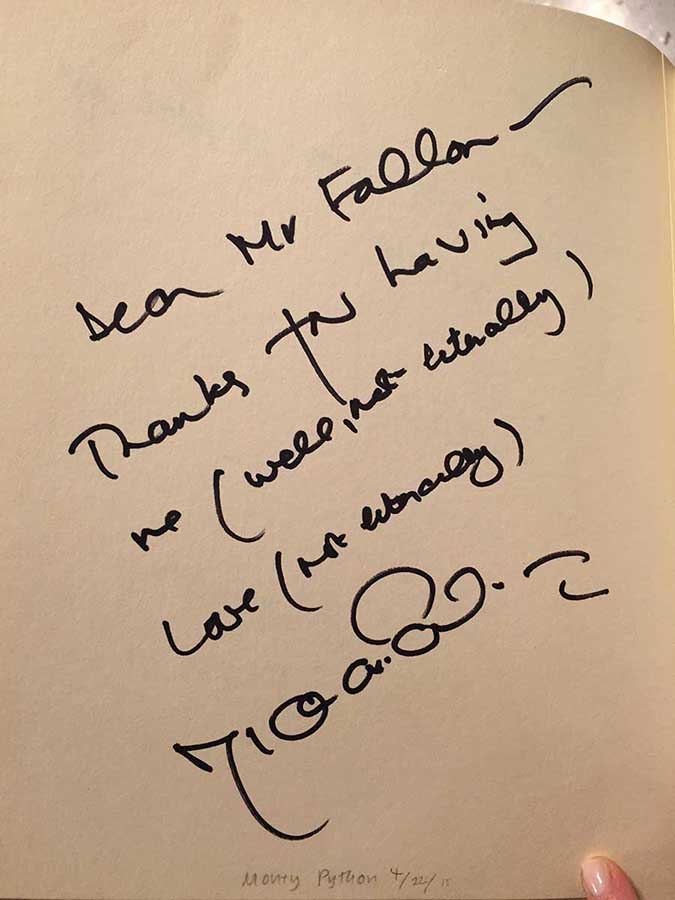 Dear Mr Fallon —
Thanks for having
me (well, not literally)
Love (not literally)
Monty Python 4/22/15